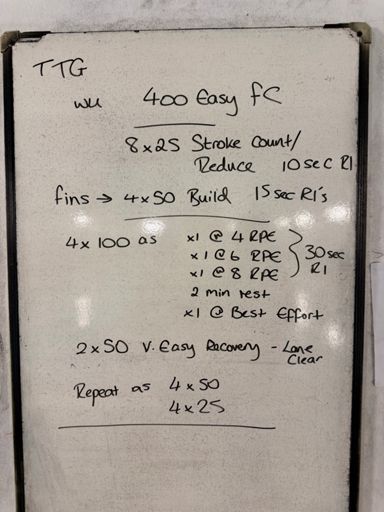 TTG
WU 400 Easy FC
8x25 Stroke Count/
Reduce 10sec RI
fins → 4x50 Build 15sec RI's
4x100 as x1 @ 4 RPE
x1 @ 6 RPE 30sec
x1 @ 8 RPE RI
2 min rest
x1 @ Best Effort
2x50 V. Easy Recovery - Lane
Clear
Repeat as 4x50
4x25